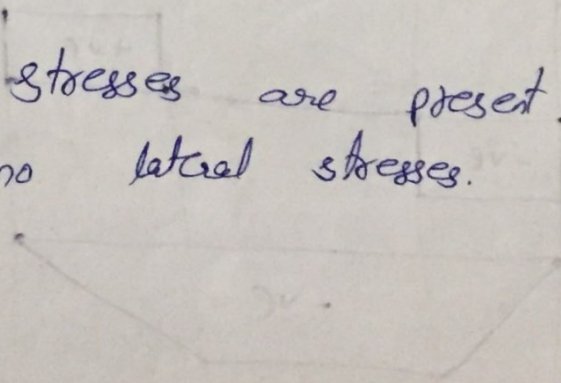 stresses are present.
no lateral stresses.